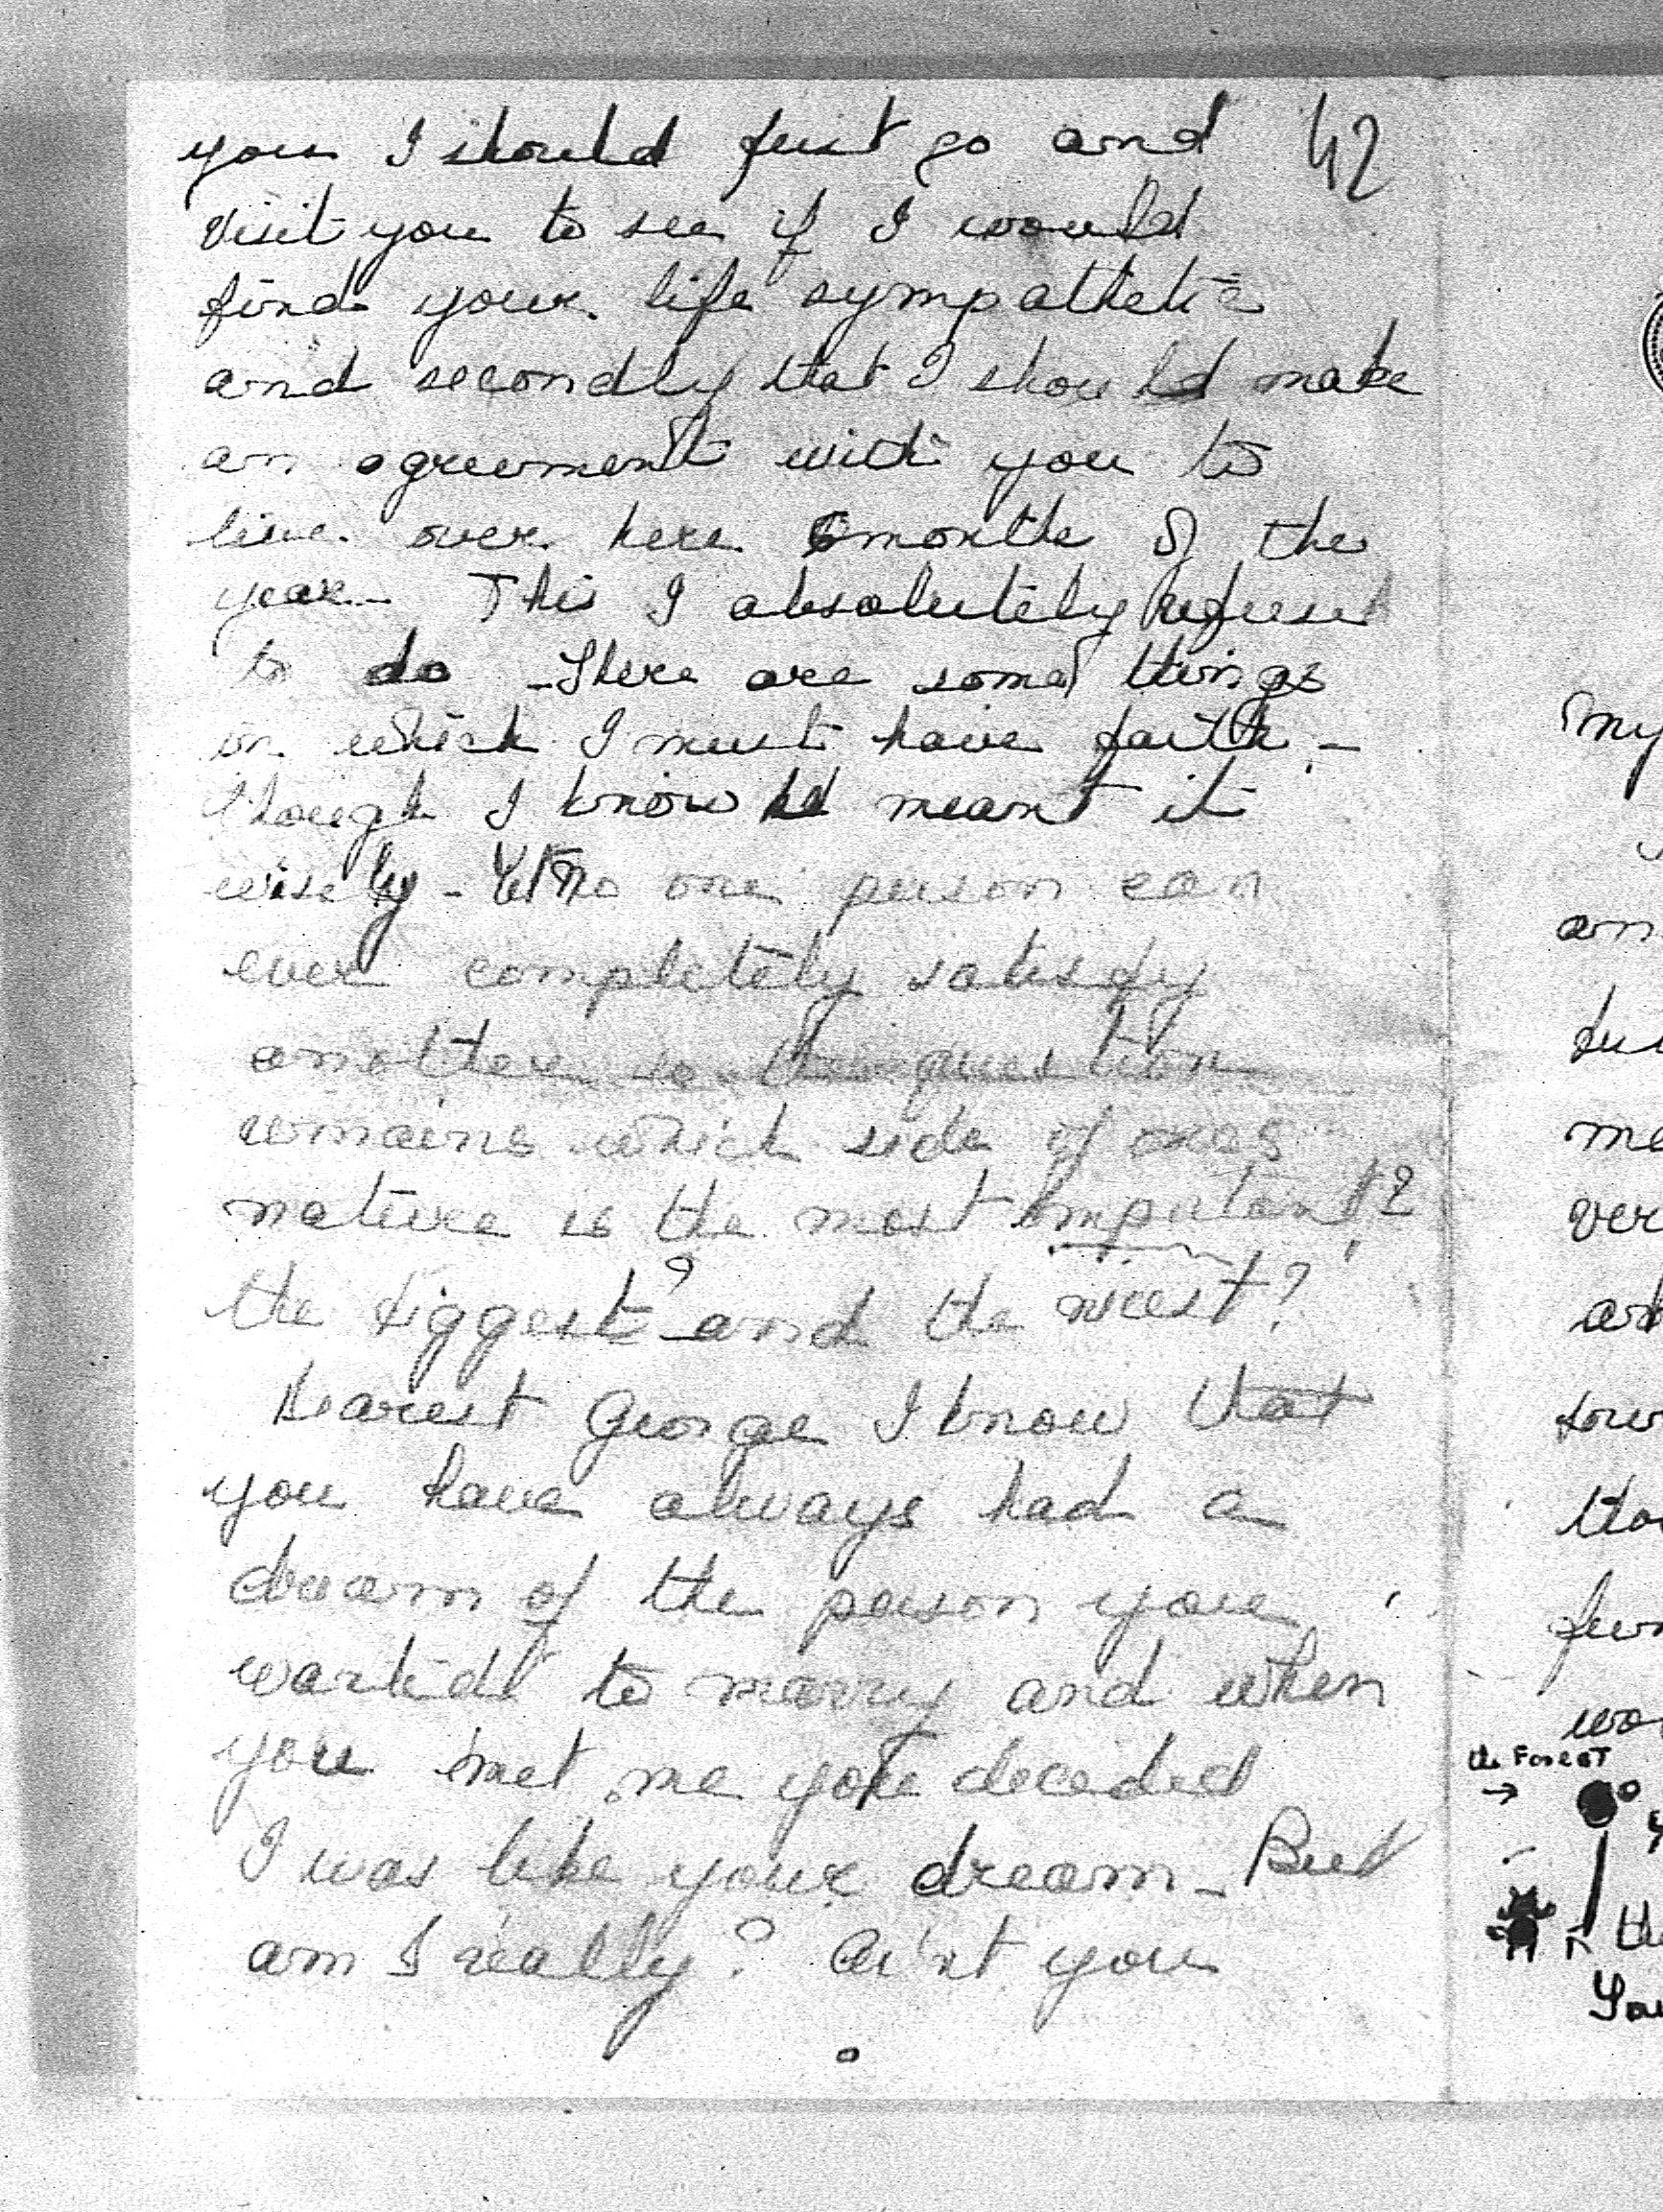 you I should first go and 42
visit you to see if I would
find your life sympathetic
and secondly that I should make
an agreement with you to
live over here 6 months of the
year – This I absolutely refused
to do – There are some things
in which I must have faith –
though I know he meant it
wisely – Yet no one person can
ever completely satisfy
another so the question
remains which side of ones
nature is the most important?
the biggest? and the nicest?
Dearest George I know that
you have always had a
dream of the person you
wanted to marry and when
you met me you decided
I was like your dream – But
am I really? Ain't you
My
an
me
ver
the Forest
→
You